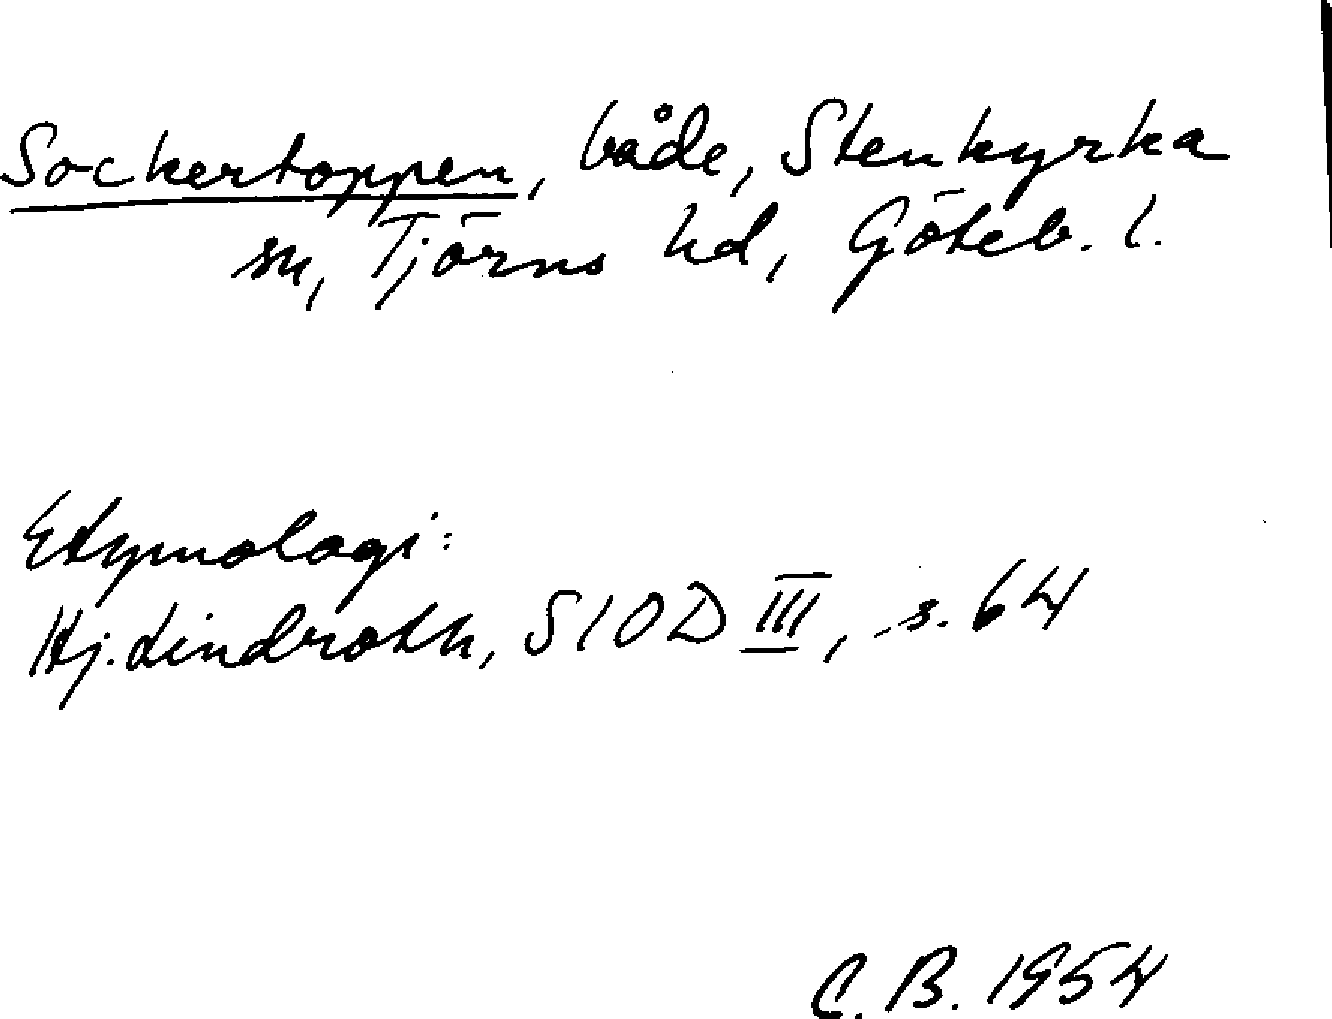 Sockertoppen, både, Stenkyrka
sn, Tjörns hd, Göteb. l.
Etymologi:
Hj. Lindroth, SIOD III, s. 64
C. B. 1954